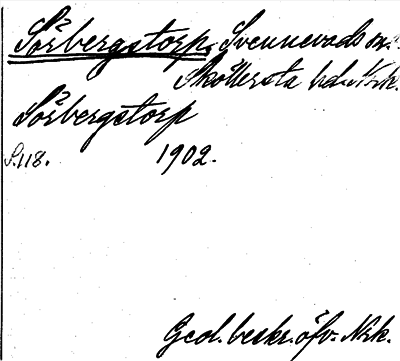 Sörbergstorp, Svennevads sn.
Sköllersta hd. Nrk.
Sörbergstorp
S.118. 1902.
Geol. beskr. öfv. Nrk.